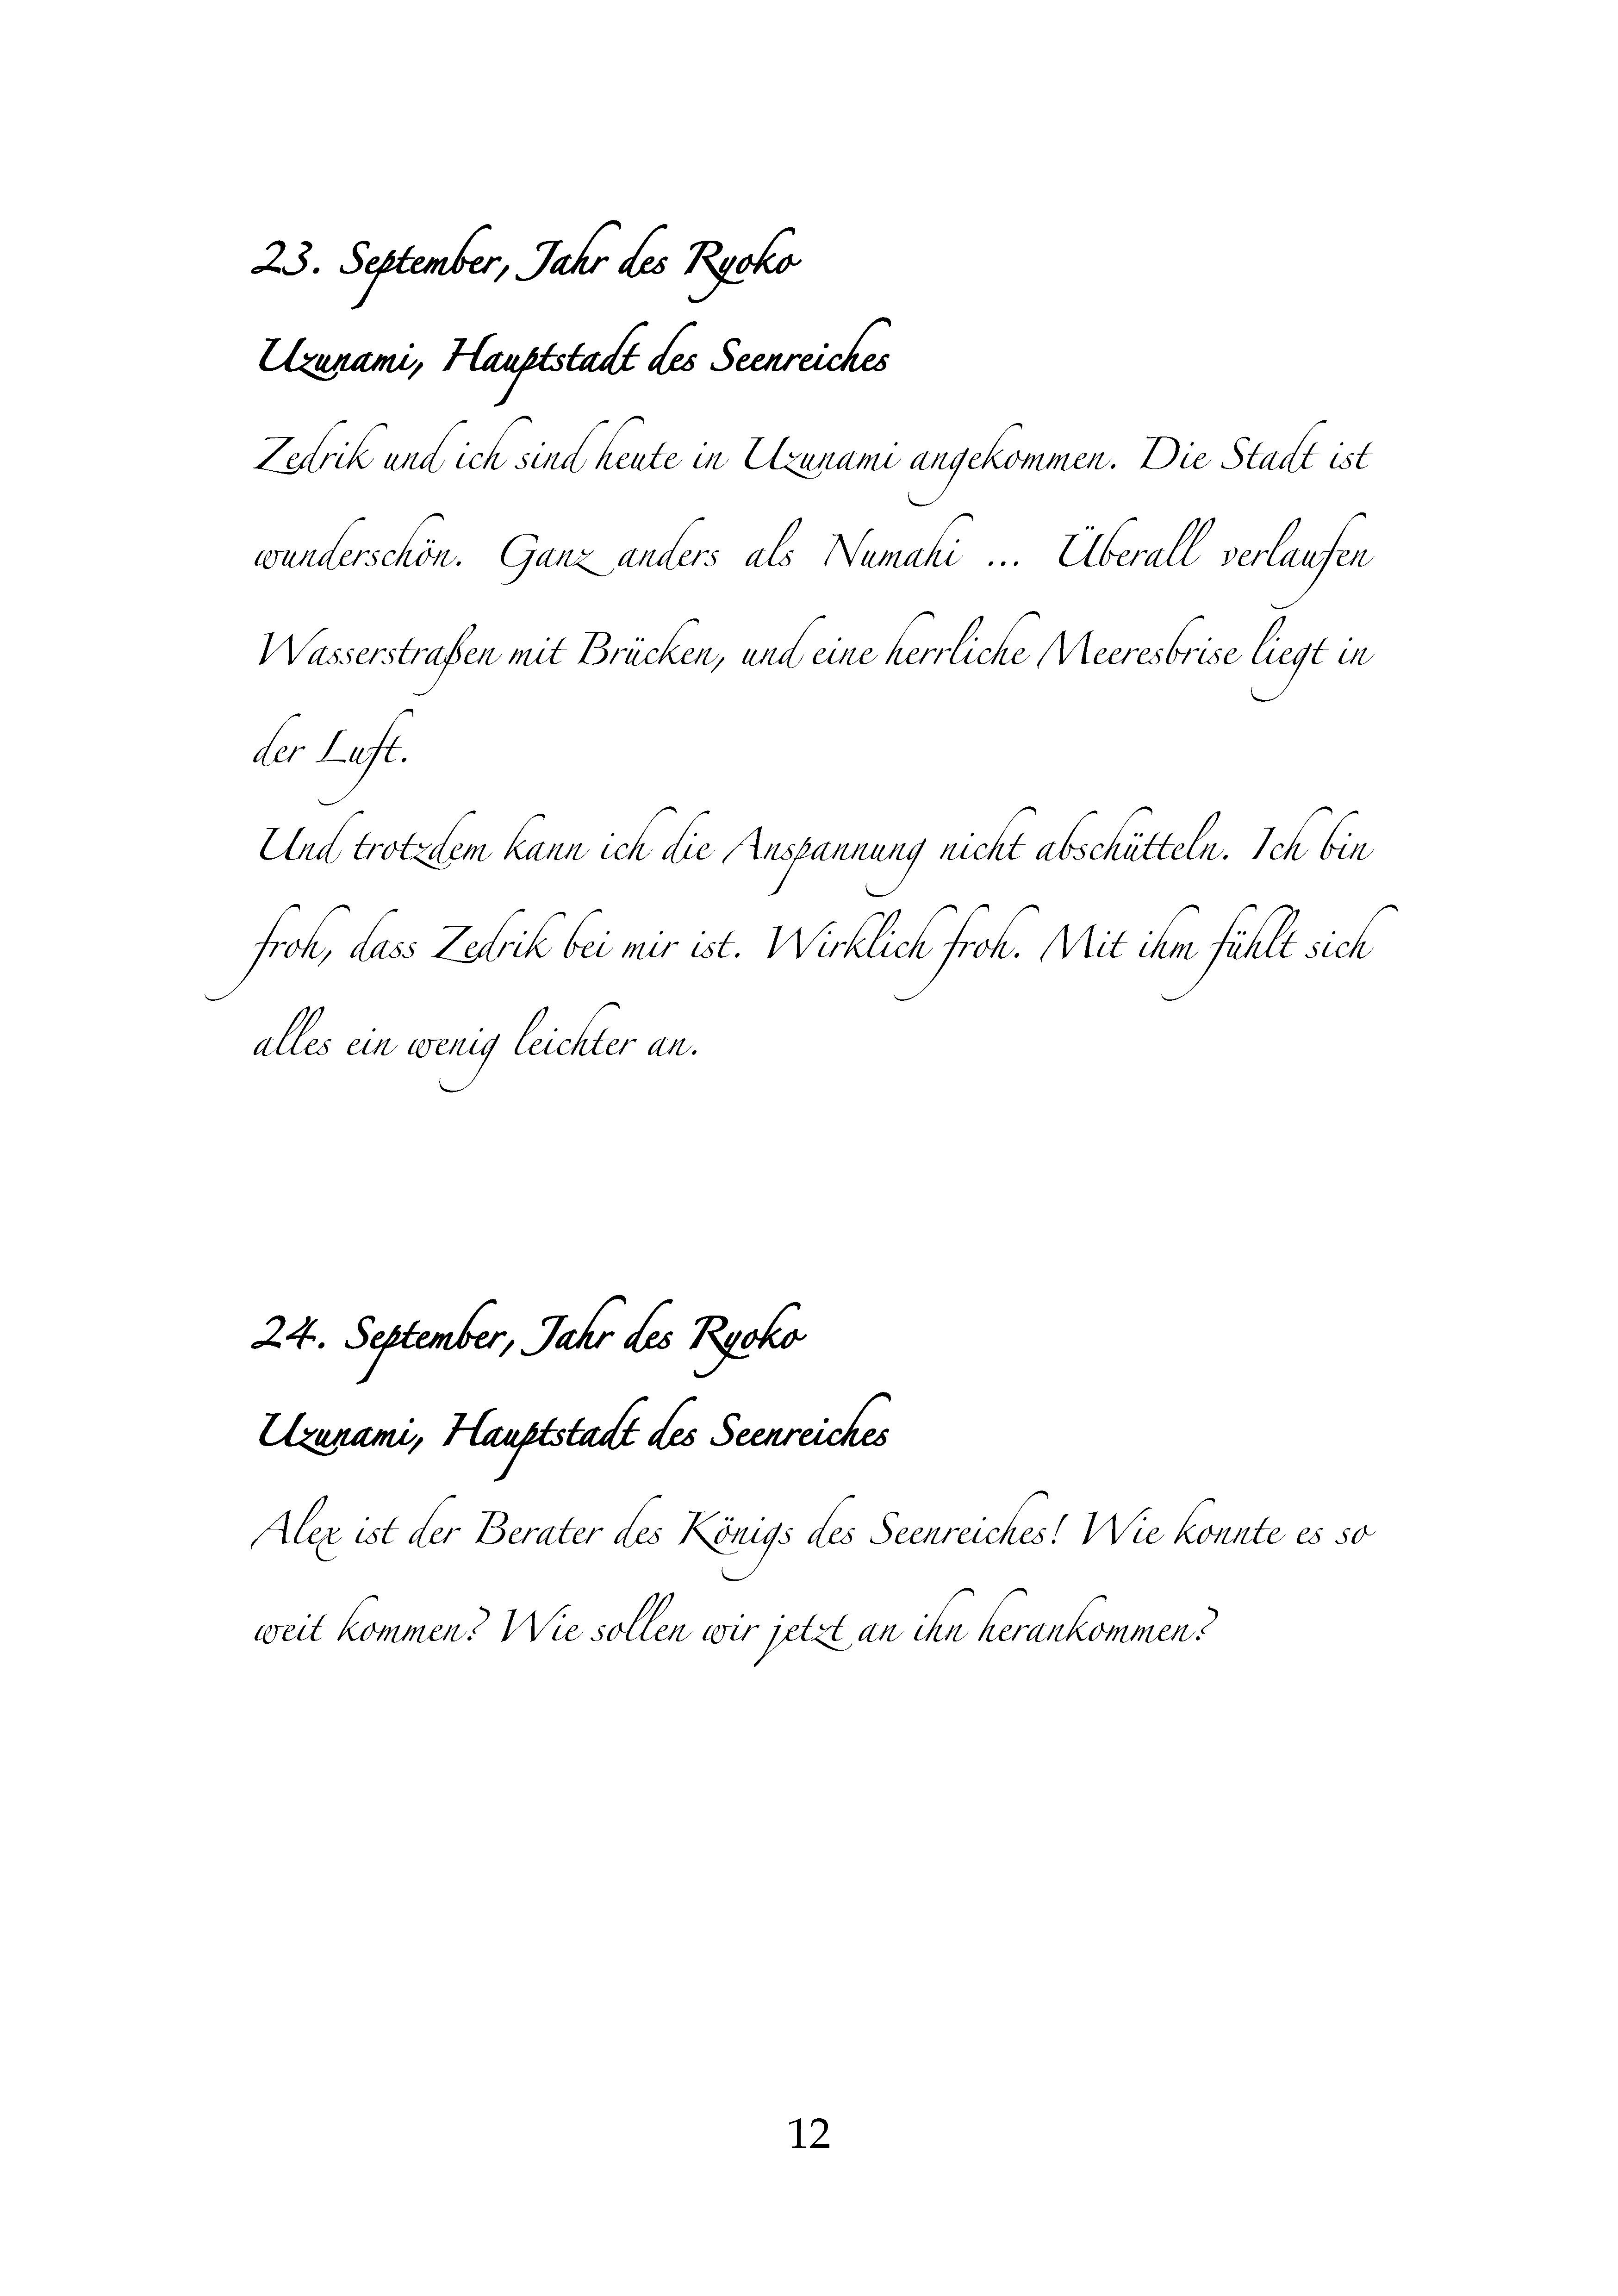 23. September, Jahr des Ryoko
Uzunami, Hauptstadt des Seenreiches
Zedrik und ich sind heute in Uzunami angekommen. Die Stadt ist
wunderschön. Ganz anders als Numahi ... Überall verlaufen
Wasserstraßen mit Brücken, und eine herrliche Meeresbrise liegt in
der Luft.
Und trotzdem kann ich die Anspannung nicht abschütteln. Ich bin
froh, dass Zedrik bei mir ist. Wirklich froh. Mit ihm fühlt sich
alles ein wenig leichter an.
24. September, Jahr des Ryoko
Uzunami, Hauptstadt des Seenreiches
Alex ist der Berater des Königs des Seenreiches! Wie konnte es so
weit kommen? Wie sollen wir jetzt an ihn herankommen?
12